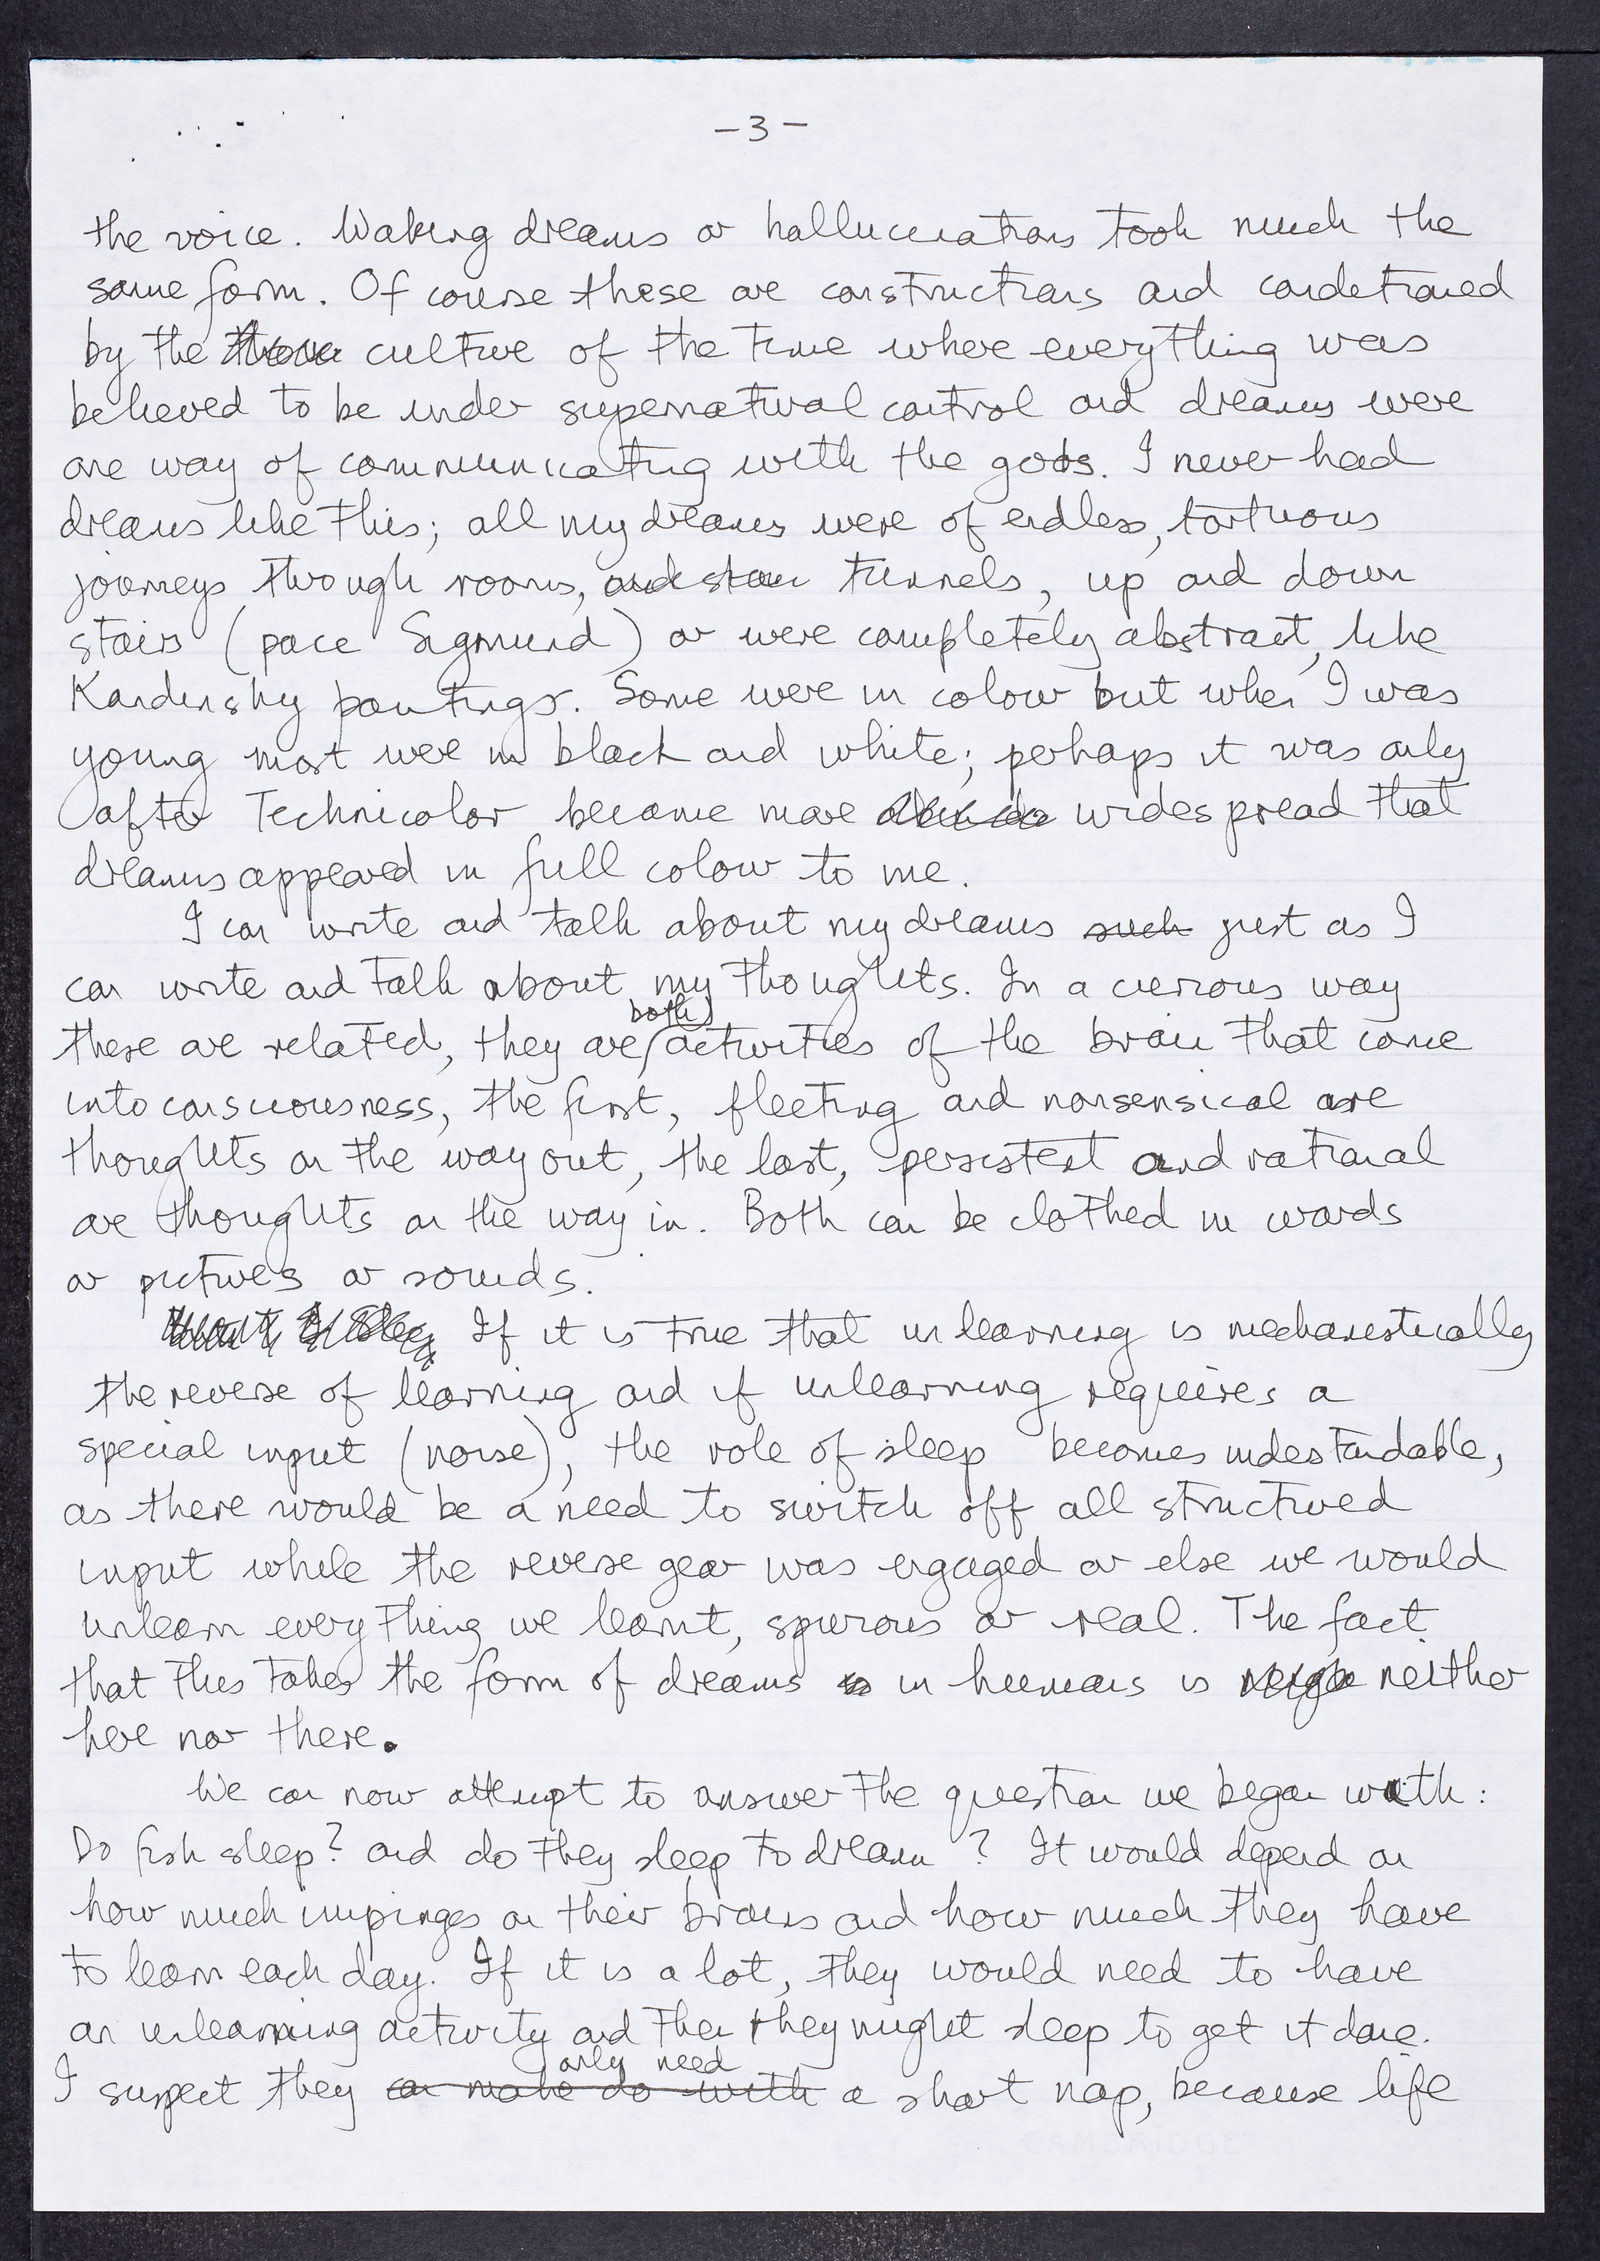 -3-
the voice. Waking dreams or hallucinations took much the
same form. Of course these are constructions and conditioned
by the culture of the time where everything was
believed to be under supernatural control and dreams were
one way of communicating with the gods. I never had
dreams like this; all my dreams were of endless, tortuous
journeys through rooms, and stair tunnels, up and down
stairs (pace Sigmund) or were completely abstract, like
Kandinsky paintings. Some were in colour but when I was
young most were in black and white; perhaps it was only
after Technicolor became more widespread that
dreams appeared in full colour to me.
I can write and talk about my dreams such just as I
can write and talk about my thoughts. In a curious way
both
these are related, they are activities of the brain that come
into consciousness, the first, fleeting and nonsensical are
thoughts on the way out, the last, persistent and rational
are thoughts on the way in. Both can be clothed in words
or pictures or sounds.
If it is true that unlearning is mechanistically
the reverse of learning and if unlearning requires a
special input (noise), the role of sleep becomes understandable,
as there would be a need to switch off all structured
input while the reverse gear was engaged or else we would
unlearn everything we learnt, spurious or real. The fact
that this takes the form of dreams in humans is neither
here nor there.
We can now attempt to answer the question we began with:
Do fish sleep? and do they sleep to dream? It would depend on
how much impinges on their brains and how much they have
to learn each day. If it is a lot, they would need to have
an unlearning activity and then they might sleep to get it done.
only need
I suspect they can make do with a short nap, because life